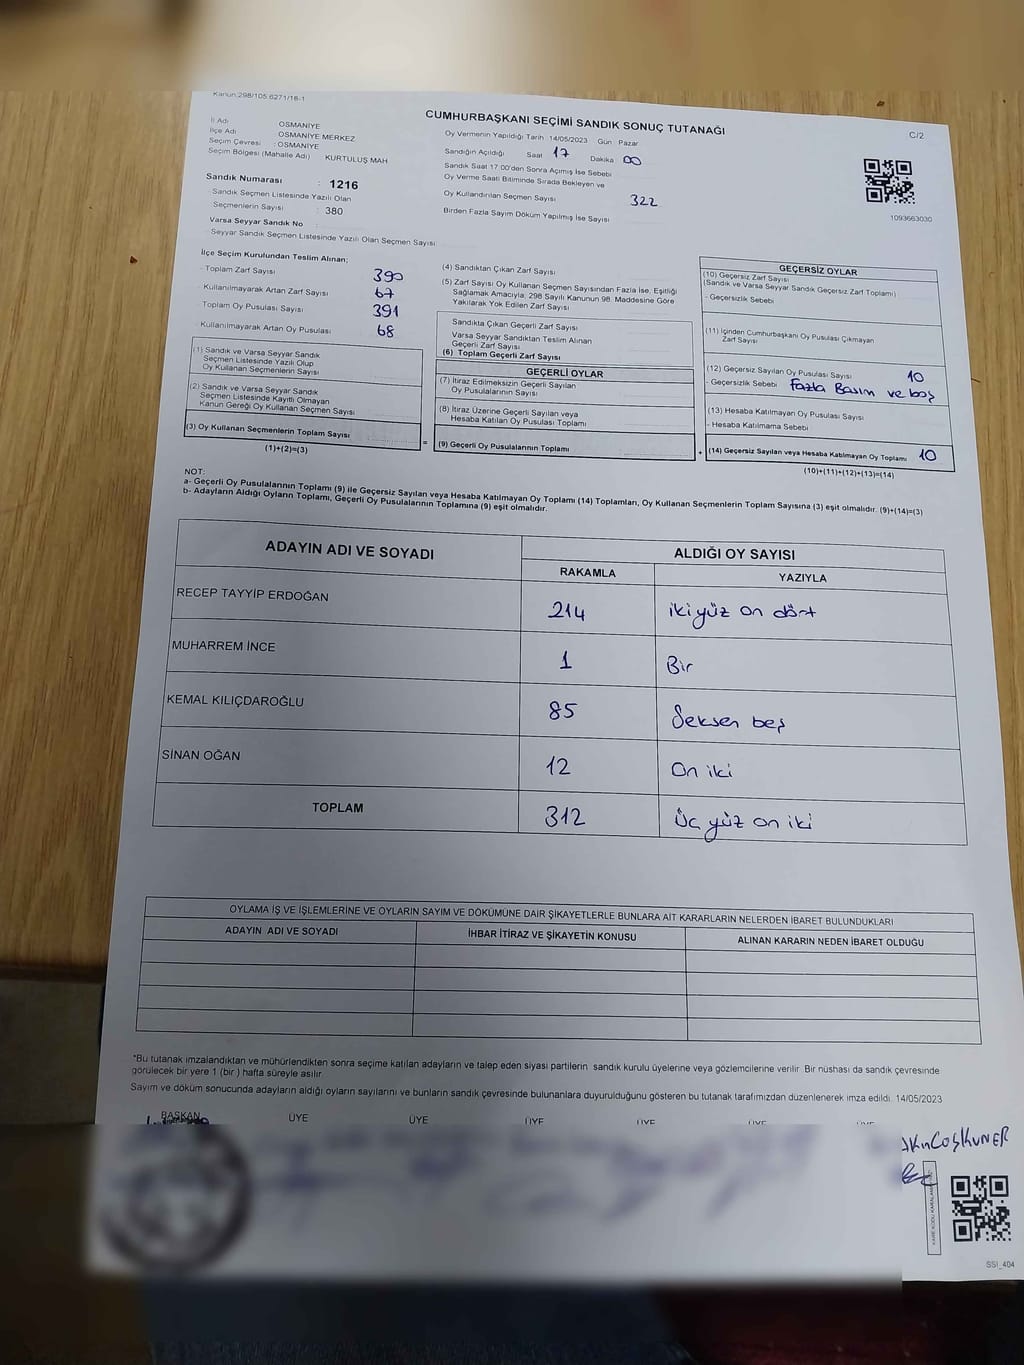 Kanun:298/105,6271/18-1
CUMHURBAŞKANI SEÇİMİ SANDIK SONUÇ TUTANAĞI
C/2
İl Adı OSMANİYE
İlçe Adı OSMANİYE MERKEZ
Seçim Çevresi : OSMANİYE
Seçim Bölgesi (Mahalle Adı) KURTULUŞ MAH
Sandık Numarası : 1216
Sandık Seçmen Listesinde Yazılı Olan
Seçmenlerin Sayısı : 380
Varsa Seyyar Sandık No :
Seyyar Sandık Seçmen Listesinde Yazılı Olan Seçmen Sayısı
Oy Vermenin Yapıldığı Tarih 14/05/2023 Gün Pazar
Sandığın Açıldığı Saat 17 Dakika 00
Sandık Saat 17:00'den Sonra Açılmış İse Sebebi
Oy Verme Saati Bitiminde Sırada Bekleyen ve
Oy Kullandırılan Seçmen Sayısı 322
Birden Fazla Sayım Döküm Yapılmış İse Sayısı
1093663030
İlçe Seçim Kurulundan Teslim Alınan;
- Toplam Zarf Sayısı 390
- Kullanılmayarak Artan Zarf Sayısı 67
- Toplam Oy Pusulası Sayısı 391
- Kullanılmayarak Artan Oy Pusulası 68
(1) Sandık ve Varsa Seyyar Sandık
Seçmen Listesinde Yazılı Olup
Oy Kullanan Seçmenlerin Sayısı
(2) Sandık ve Varsa Seyyar Sandık
Seçmen Listesinde Kayıtlı Olmayan
Kanun Gereği Oy Kullanan Seçmen Sayısı
(3) Oy Kullanan Seçmenlerin Toplam Sayısı
(1)+(2)=(3)
(4) Sandıktan Çıkan Zarf Sayısı
(5) Zarf Sayısı Oy Kullanan Seçmen Sayısından Fazla İse, Eşitliği
Sağlamak Amacıyla, 298 Sayılı Kanunun 98. Maddesine Göre
Yakılarak Yok Edilen Zarf Sayısı
Sandıkta Çıkan Geçerli Zarf Sayısı
Varsa Seyyar Sandıktan Teslim Alınan
Geçerli Zarf Sayısı
(6) Toplam Geçerli Zarf Sayısı
GEÇERLİ OYLAR
(7) İtiraz Edilmeksizin Geçerli Sayılan
Oy Pusulalarının Sayısı
(8) İtiraz Üzerine Geçerli Sayılan veya
Hesaba Katılan Oy Pusulası Toplamı
= (9) Geçerli Oy Pusulalarının Toplamı +
GEÇERSİZ OYLAR
(10) Geçersiz Zarf Sayısı
(Sandık ve Varsa Seyyar Sandık Geçersiz Zarf Toplamı)
- Geçersizlik Sebebi
(11) İçinden Cumhurbaşkanı Oy Pusulası Çıkmayan
Zarf Sayısı
(12) Geçersiz Sayılan Oy Pusulası Sayısı 10
- Geçersizlik Sebebi Fazla Basım ve boş
(13) Hesaba Katılmayan Oy Pusulası Sayısı
- Hesaba Katılmama Sebebi
(14) Geçersiz Sayılan veya Hesaba Katılmayan Oy Toplamı 10
(10)+(11)+(12)+(13)=(14)
NOT:
a- Geçerli Oy Pusulalarının Toplamı (9) ile Geçersiz Sayılan veya Hesaba Katılmayan Oy Toplamı (14) Toplamları, Oy Kullanan Seçmenlerin Toplam Sayısına (3) eşit olmalıdır. (9)+(14)=(3)
b- Adayların Aldığı Oyların Toplamı, Geçerli Oy Pusulalarının Toplamına (9) eşit olmalıdır.
ADAYIN ADI VE SOYADI ALDIĞI OY SAYISI
RAKAMLA YAZIYLA
RECEP TAYYİP ERDOĞAN 214 ikiyüz on dört
MUHARREM İNCE 1 Bir
KEMAL KILIÇDAROĞLU 85 Seksen beş
SİNAN OĞAN 12 On iki
TOPLAM 312 Üç yüz on iki
OYLAMA İŞ VE İŞLEMLERİNE VE OYLARIN SAYIM VE DÖKÜMÜNE DAİR ŞİKAYETLERLE BUNLARA AİT KARARLARIN NELERDEN İBARET BULUNDUKLARI
ADAYIN ADI VE SOYADI İHBAR İTİRAZ VE ŞİKAYETİN KONUSU ALINAN KARARIN NEDEN İBARET OLDUĞU
*Bu tutanak imzalandıktan ve mühürlendikten sonra seçime katılan adayların ve talep eden siyasi partilerin sandık kurulu üyelerine veya gözlemcilerine verilir. Bir nüshası da sandık çevresinde
görülecek bir yere 1 (bir ) hafta süreyle asılır.
Sayım ve döküm sonucunda adayların aldığı oyların sayılarını ve bunların sandık çevresinde bulunanlara duyurulduğunu gösteren bu tutanak tarafımızdan düzenlenerek imza edildi. 14/05/2023
BAŞKAN ÜYE ÜYE ÜYE ÜYE ÜYE ÜYE
COŞKUNER
SSİ_404